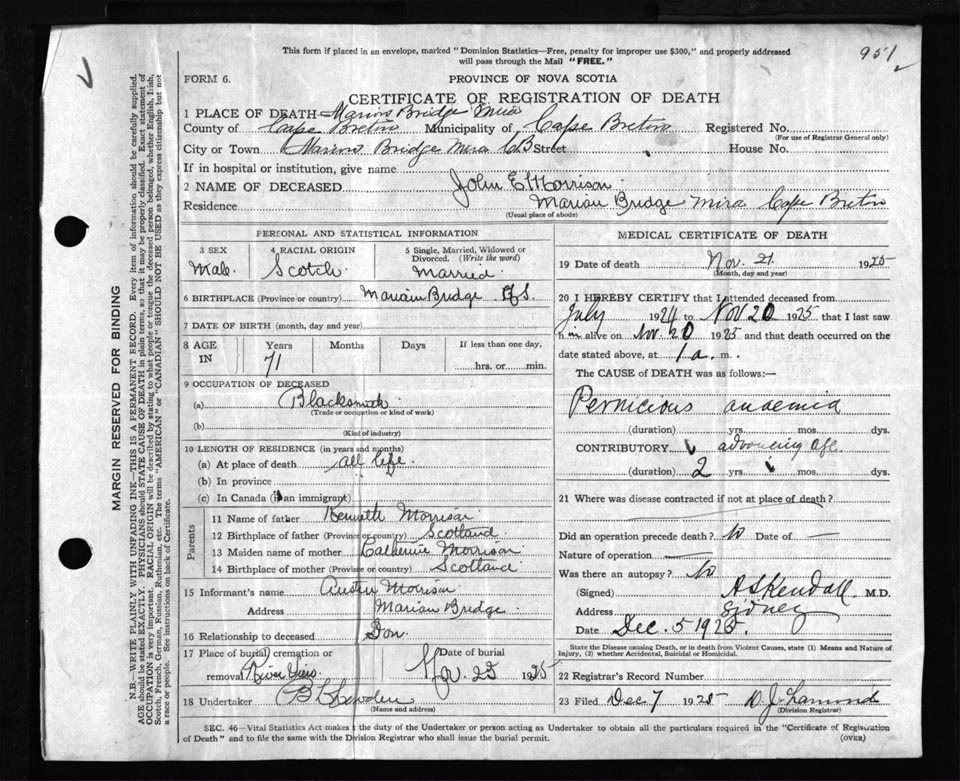 This form if placed in an envelope, marked "Dominion Statistics—Free, penalty for improper use $300," and properly addressed
will pass through the Mail "FREE."
951
FORM 6.
PROVINCE OF NOVA SCOTIA
CERTIFICATE OF REGISTRATION OF DEATH
1 PLACE OF DEATH Marion Bridge Mira
County of Cape Breton Municipality of Cape Breton Registered No.
(For use of Registrar General only)
City or Town Marion Bridge Mira CB Street House No.
If in hospital or institution, give name
2 NAME OF DECEASED John E Morrison
Residence Marion Bridge Mira Cape Breton
(Usual place of abode)
PERSONAL AND STATISTICAL INFORMATION
3 SEX 4 RACIAL ORIGIN 5 Single, Married, Widowed or
Divorced. (Write the word)
Male Scotch Married
6 BIRTHPLACE (Province or country) Marion Bridge
7 DATE OF BIRTH (month, day and year)
8 AGE IN Years Months Days If less than one day,
71 hrs. or min.
9 OCCUPATION OF DECEASED
(a) Blacksmith
(Trade or occupation or kind of work)
(b)
(Kind of industry)
10 LENGTH OF RESIDENCE (in years and months)
(a) At place of death all life
(b) In province
(c) In Canada (if an immigrant)
Parents
11 Name of father Kenneth Morrison
12 Birthplace of father (Province or country) Scotland
13 Maiden name of mother Catherine Morrison
14 Birthplace of mother (Province or country) Scotland
15 Informant's name Austin Morrison
Address Marion Bridge
16 Relationship to deceased Son
17 Place of burial, cremation or Date of burial
removal River View Nov. 23 1925
18 Undertaker
(Name and address)
MEDICAL CERTIFICATE OF DEATH
19 Date of death Nov. 21 1925
(Month, day and year)
20 I HEREBY CERTIFY that I attended deceased from
July 1924 to Nov 20 1925 that I last saw
him alive on Nov 20 1925 and that death occurred on the
date stated above, at 1 a. m.
The CAUSE of DEATH was as follows:—
Pernicious anaemia
(duration) yrs. mos. dys.
CONTRIBUTORY advancing age
(duration) 2 yrs. mos. dys.
21 Where was disease contracted if not at place of death?
Did an operation precede death? No Date of —
Nature of operation —
Was there an autopsy? No
(Signed) A S Kendall M.D.
Address Sidney
Date Dec. 5 1925.
State the Disease causing Death, or in death from Violent Causes, state (1) Means and Nature of
Injury, (2) whether Accidental, Suicidal or Homicidal.
22 Registrar's Record Number
23 Filed Dec 7 1925 D. J. Lamond
(Division Registrar)
SEC. 46—Vital Statistics Act makes it the duty of the Undertaker or person acting as Undertaker to obtain all the particulars required in the "Certificate of Registration
of Death" and to file the same with the Division Registrar who shall issue the burial permit. (OVER)
MARGIN RESERVED FOR BINDING
N.B.—WRITE PLAINLY WITH UNFADING INK—THIS IS A PERMANENT RECORD. Every item of information should be carefully supplied.
AGE should be stated EXACTLY. PHYSICIANS should STATE CAUSE OF DEATH in plain terms, so that it may be properly classified. Exact statement of
OCCUPATION is very important. RACIAL ORIGIN will be described by stating to what people or tongue the deceased person belonged, whether English, Irish,
Scotch, French, German, Russian, Ruthenian, etc. The terms "AMERICAN" or "CANADIAN" SHOULD NOT BE USED as they express citizenship but not
a race or people. See instructions on back of Certificate.